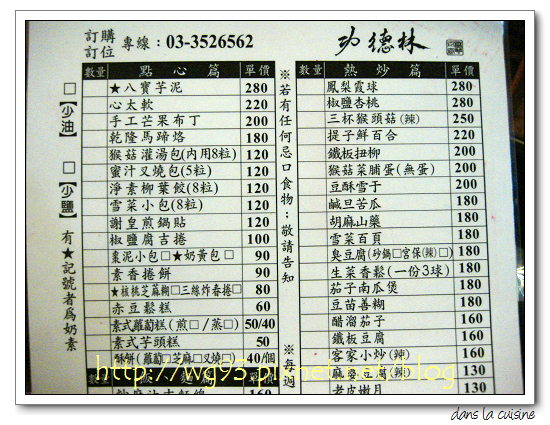 訂購
訂位
專線：03-3526562
功德林
數量 點心篇 單價
★八寶芋泥 280
心太軟 220
手工芒果布丁 200
乾隆馬蹄烙 180
猴菇灌湯包(內用8粒) 120
蜜汁叉燒包(5粒) 120
淨素柳葉餃(8粒) 120
雪菜小包(8粒) 120
謝皇煎鍋貼 120
椒鹽腐吉捲 100
棗泥小包□★奶黃包□ 90
素香捲餅 90
★核桃芝麻糊□三絲炸春捲□ 80
赤豆鬆糕 60
素式蘿蔔糕(煎□/蒸□) 50/40
素式芋頭糕 50
酥餅(蘿蔔□芝麻□叉燒□) 40/個
數量 單價
□【少油】 □【少鹽】 有★記號者為奶素
※若有任何忌口食物：敬請告知
※每週
數量 熱炒篇 單價
鳳梨霞球 280
椒鹽杏桃 280
三杯猴頭菇(辣) 250
提子鮮百合 220
鐵板扭柳 200
猴菇菜脯蛋(無蛋) 200
豆酥雪于 200
鹹旦苦瓜 180
胡麻山藥 180
雪菜百頁 180
臭豆腐(砂鍋□宮保(辣)□) 180
生菜香鬆(一份3球) 180
茄子南瓜煲 180
豆苗善糊 180
醋溜茄子 160
鐵板豆腐 160
客家小炒(辣) 160
麻婆豆腐(辣) 130
老皮嫩月 130
dans la cuisine